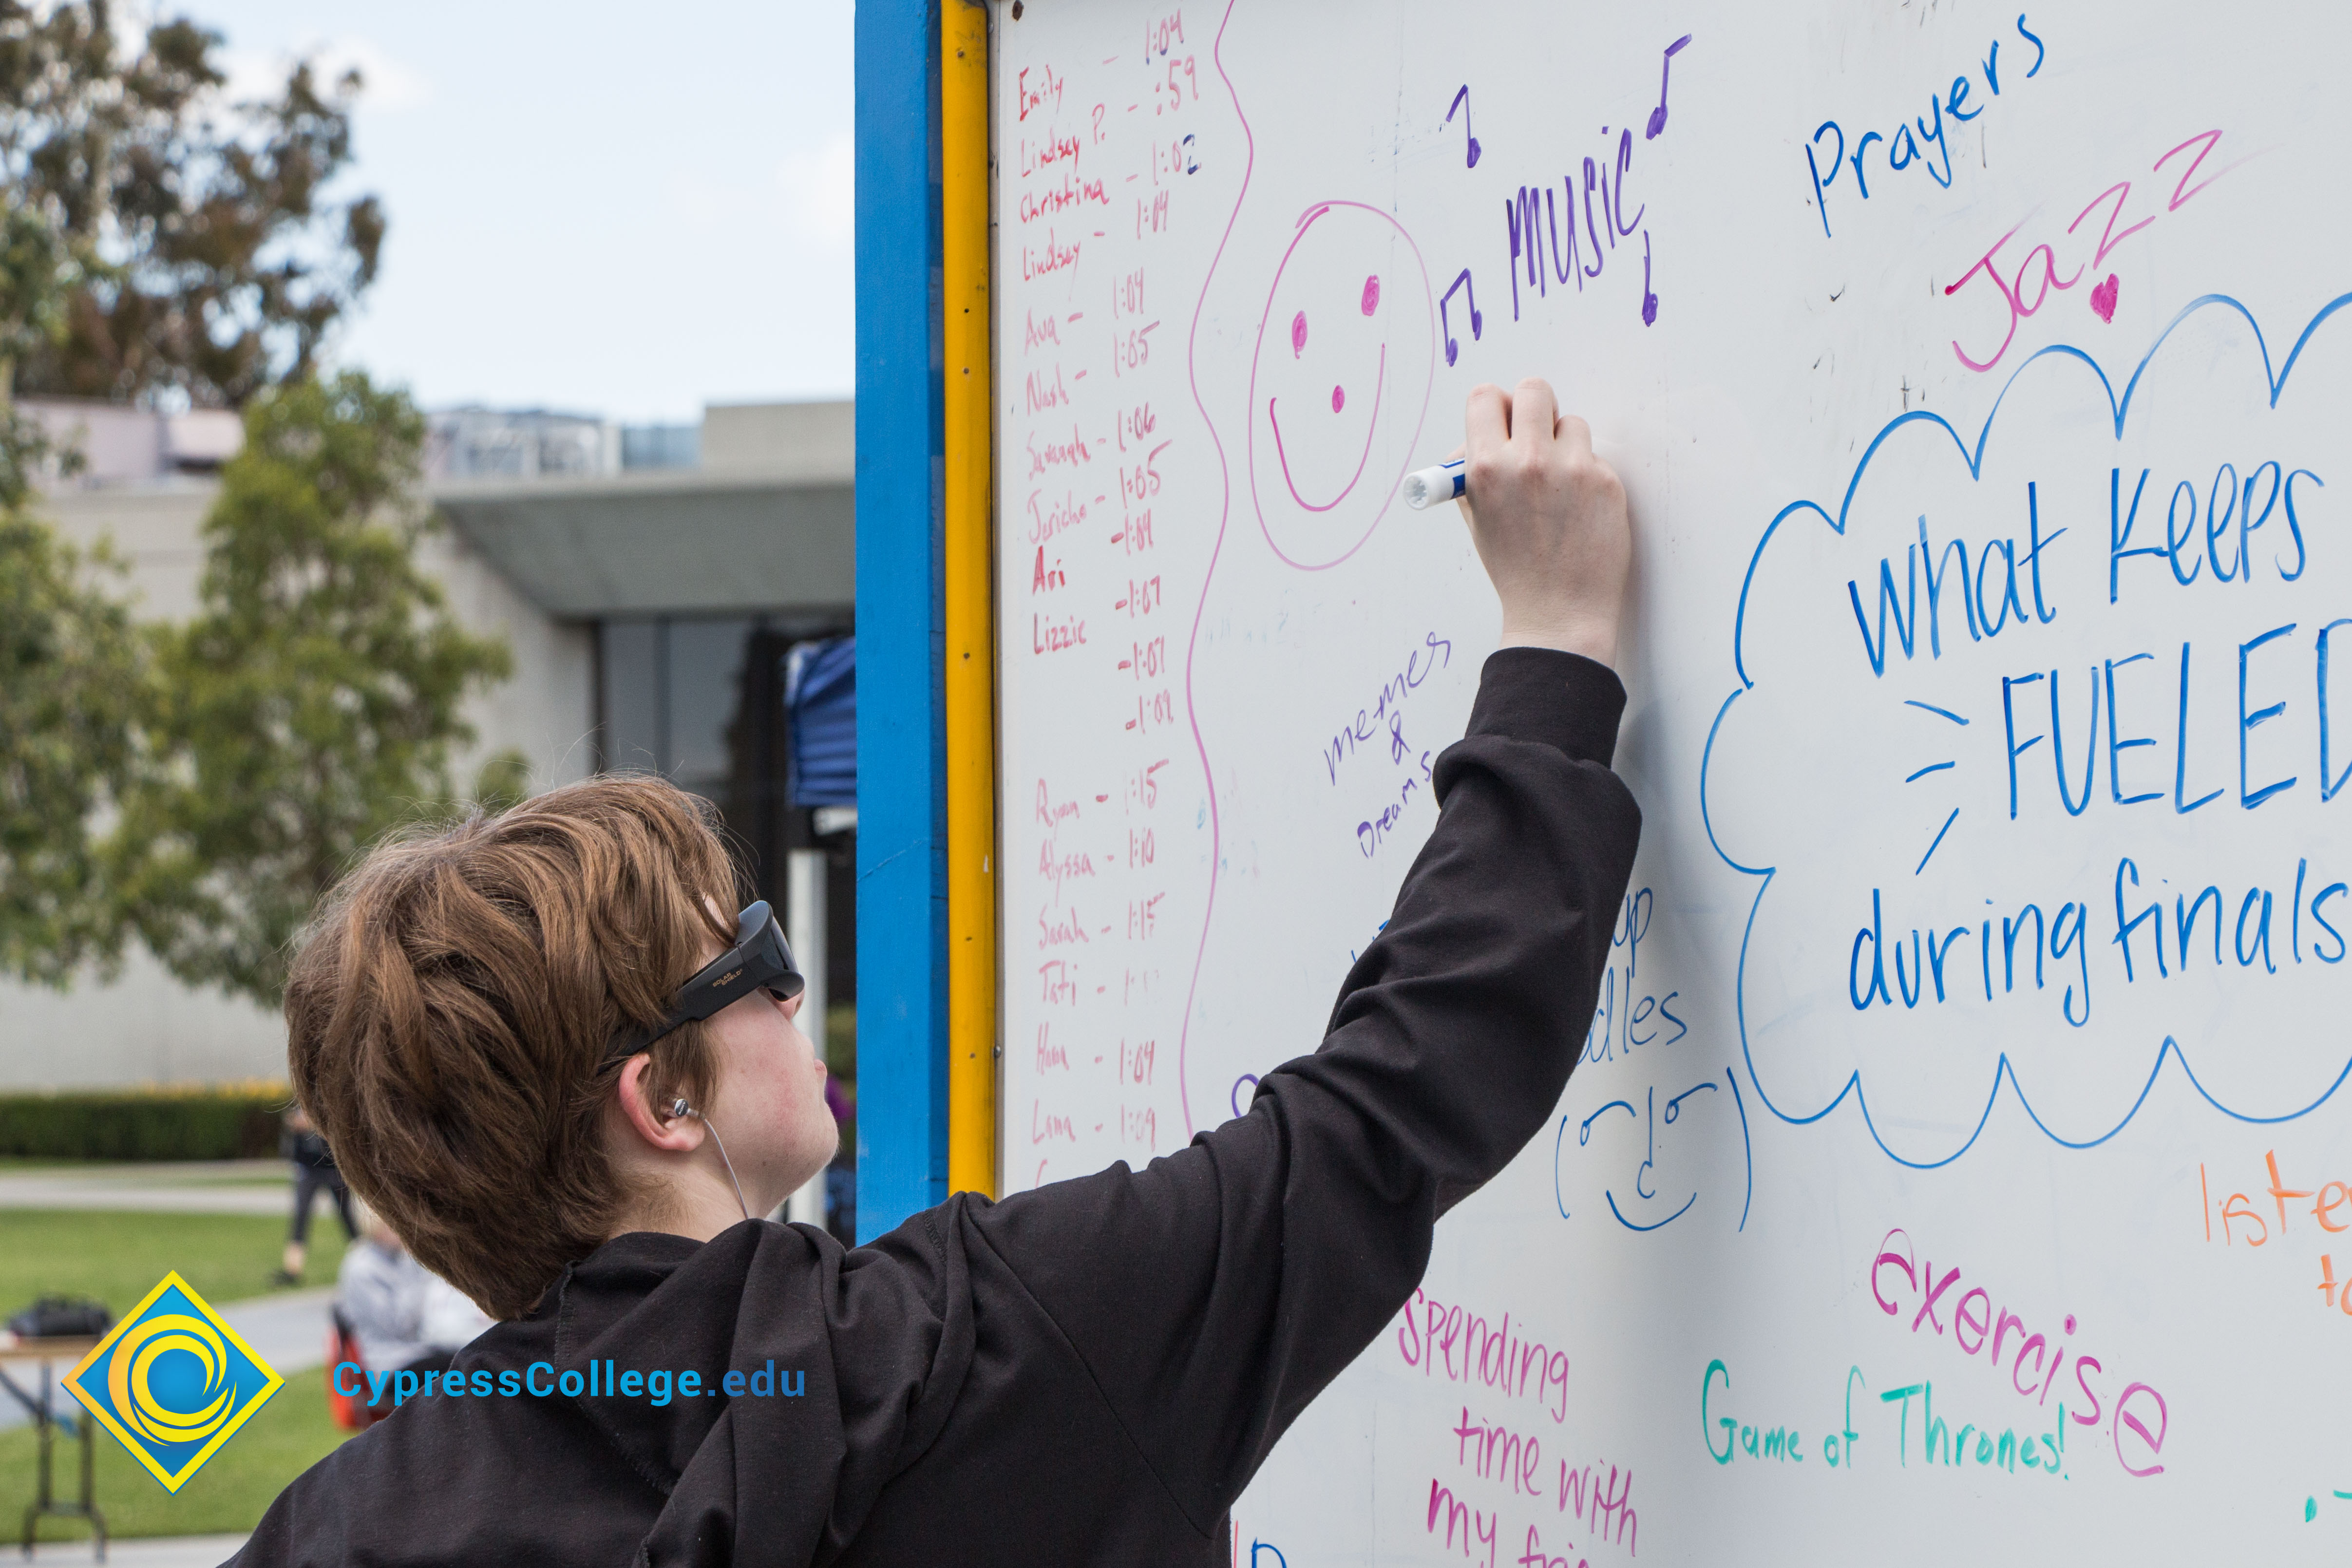 Emily - 1:04
Lindsey P. - :59
Christina - 1:02
Lindsey - 1:04
Ava - 1:04
Nash - 1:05
Savannah - 1:06
Jericho - 1:05
Ari - 1:04
Lizzie - 1:07
- 1:07
- 1:09
Ryan - 1:15
Alyssa - 1:10
Sarah - 1:15
Tati -
Hana - 1:04
Lana - 1:09
music
Prayers
Jazz
memes
&
Dreams
What keeps
FUELED
during finals
exercise
Game of Thrones!
spending
time with
my
SOLAR
SHIELD
CypressCollege.edu